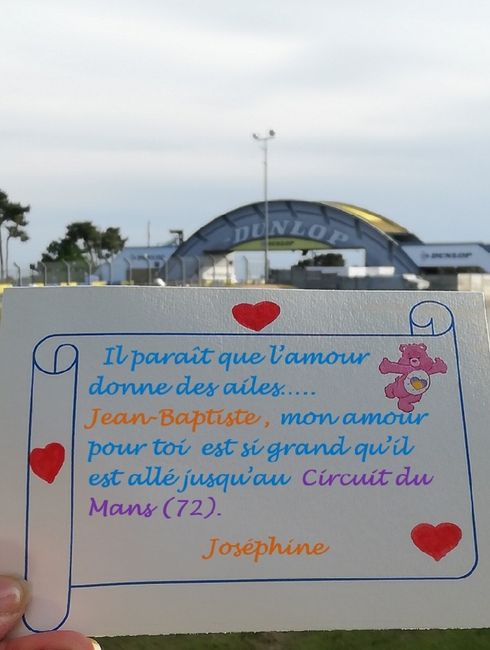 DUNLOP
DUNLOP
DUNLOP
Il paraît que l'amour
donne des ailes.....
Jean-Baptiste , mon amour
pour toi est si grand qu'il
est allé jusqu'au Circuit du
Mans (72).
Joséphine